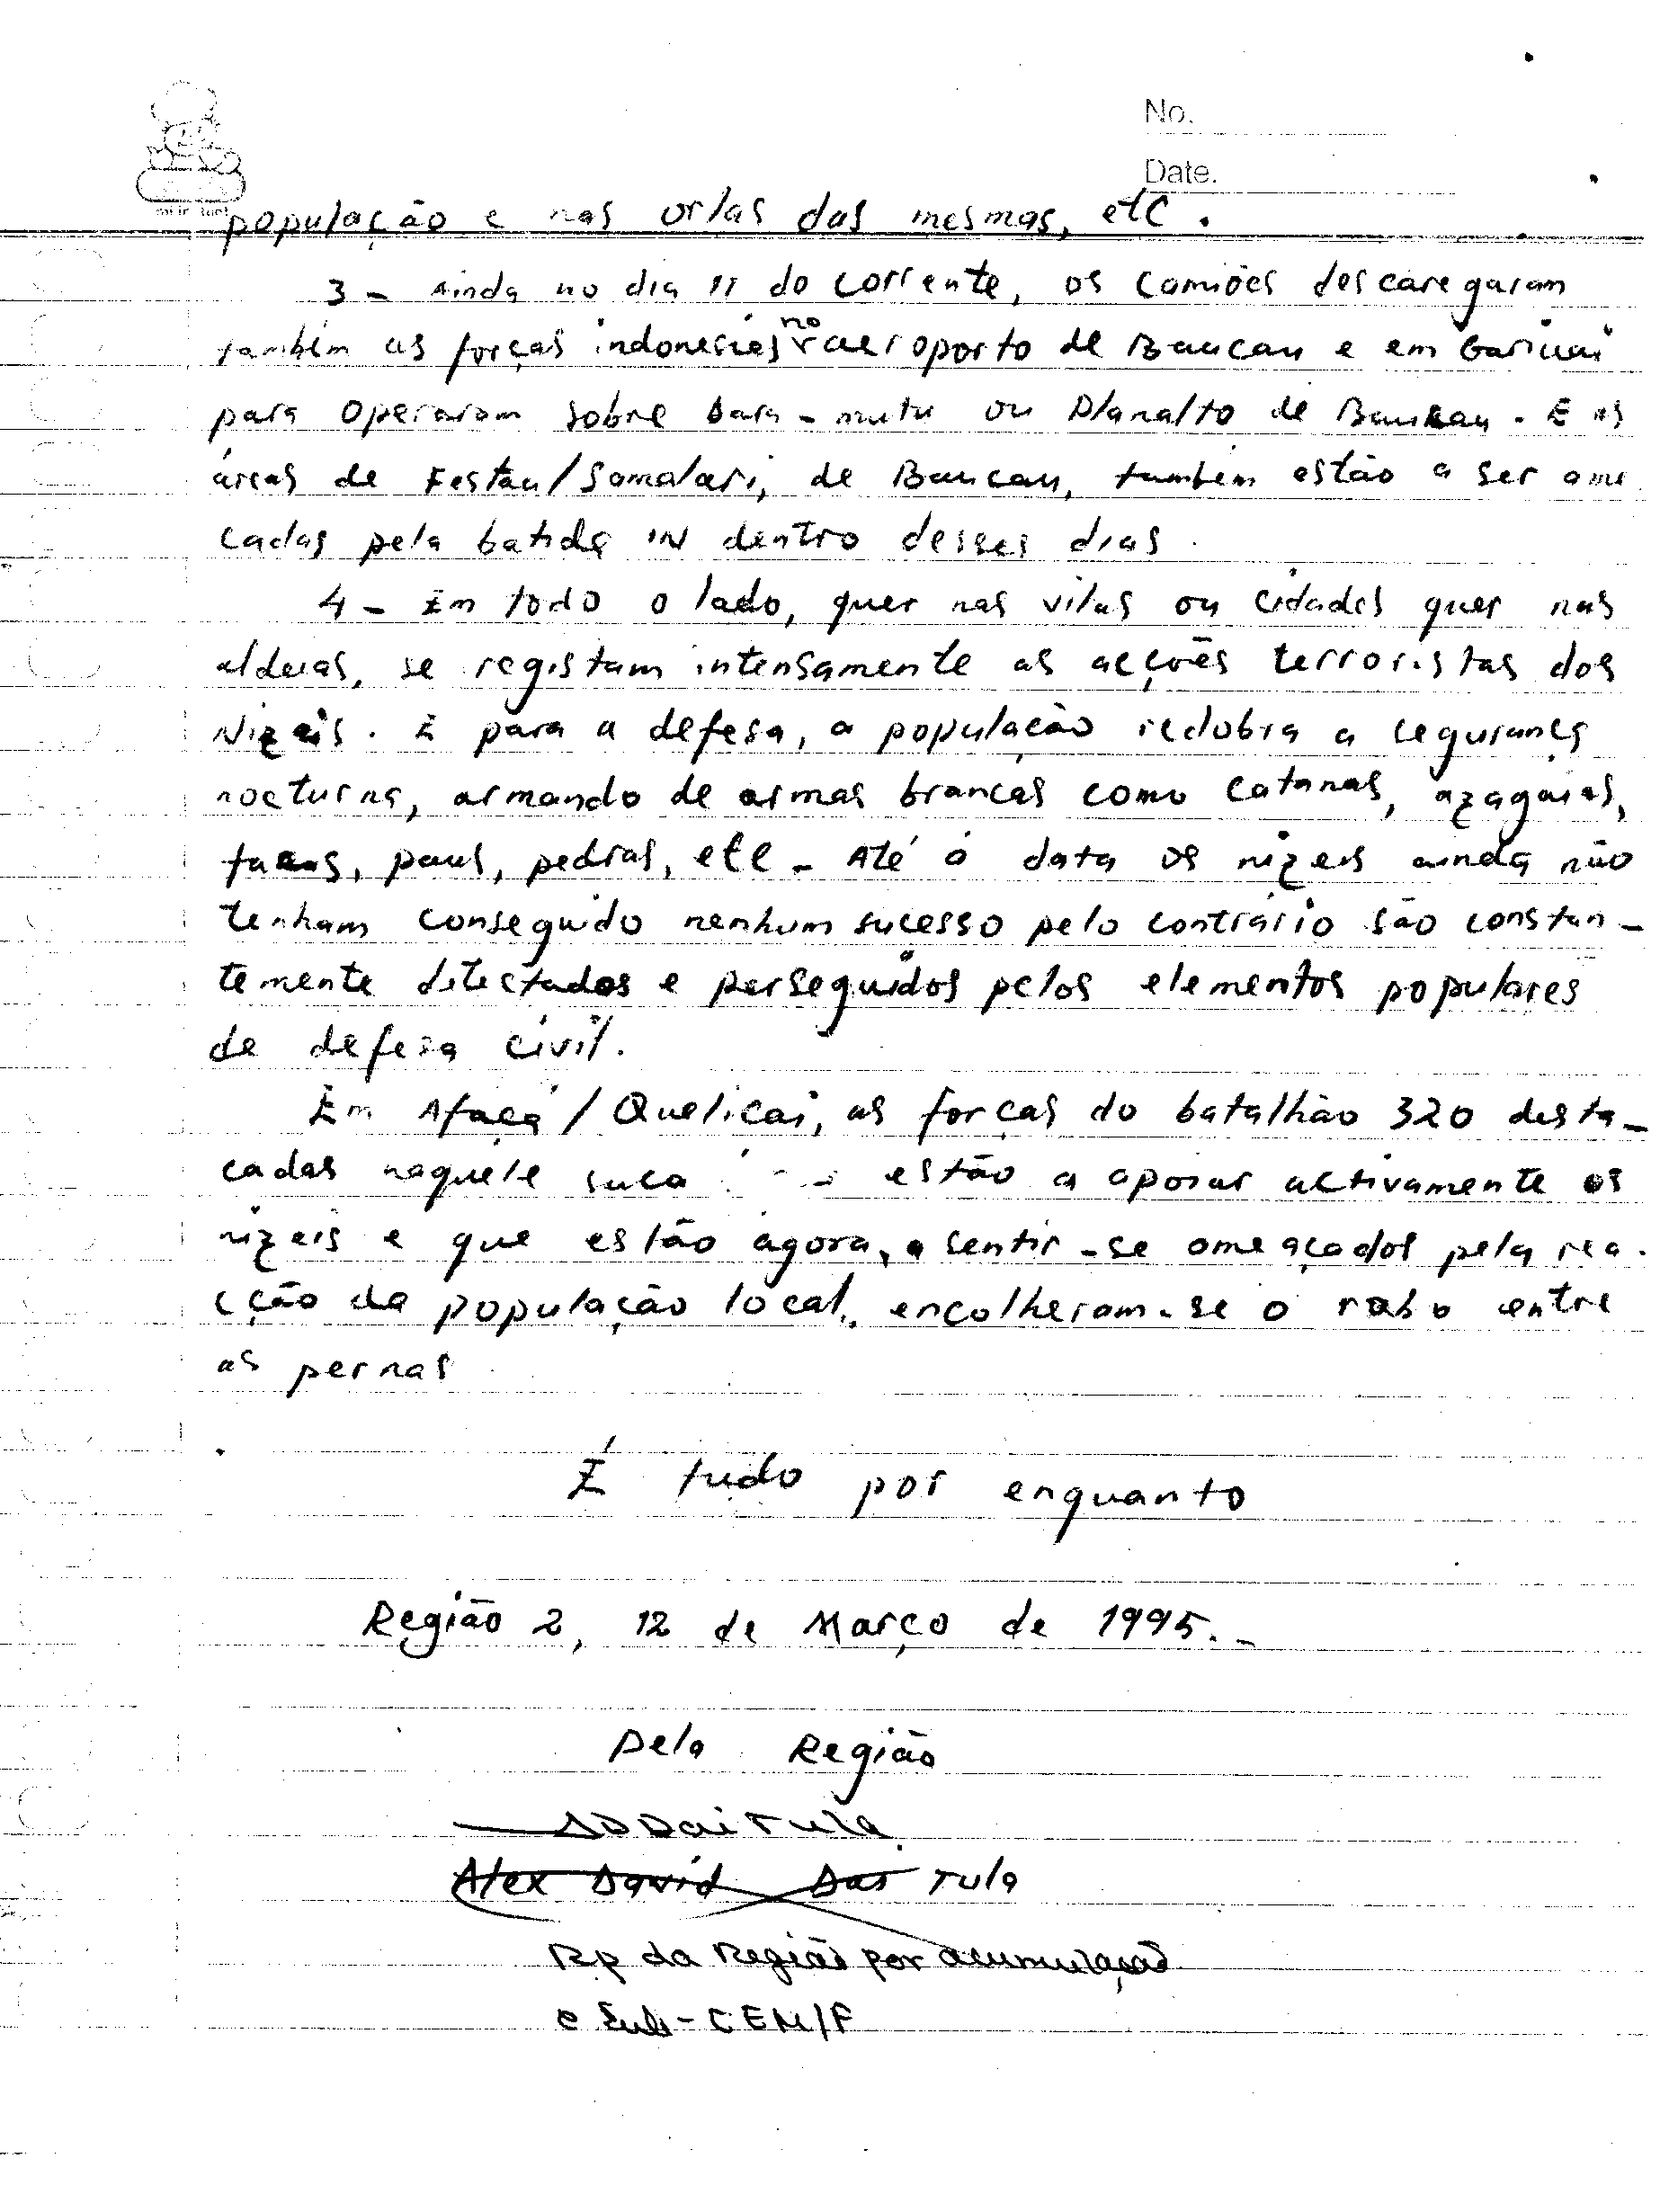 No.
Date.
população e nas orlas das mesmas, etc.
3 - Ainda no dia 11 do corrente, os camiões descaregaram
também as forças indonesias no aeroporto de Baucau e em Gariuai
para operarom sobre Dara-mutu ou Planalto de Baucau. E as
áreas de Festau/Samalari, de Baucau, também estão a ser ame
cadas pela batida IN dentro desses dias.
4 - Em todo o lado, quer nas vilas ou cidades quer nas
aldeias, se registam intensamente as acções terroristas dos
Nizeis. E para a defesa, a população redobra a segurança
nocturna, armando de armas brancas como catanas, azagaias,
facas, paus, pedras, etc - Até à data os nizeis ainda não
tenham conseguido nenhum sucesso pelo contrário são constan-
temente ditectados e perseguidos pelos elementos populares
de defesa civil.
Em Afaçá/Quelicai, as forças do batalhão 320 desta-
cadas naquele suco estão a apoiar activamente os
nizeis e que estão agora, a sentir-se omeaçados pela rea-
cção da população local, encolherom-se o rabo entre
as pernas
É tudo por enquanto
Região 2, 12 de Março de 1995.-
Pela Região
ADDaiTula
Alex David Dai Tula
Rp da Região por acumulação
e Sub-CEM/F